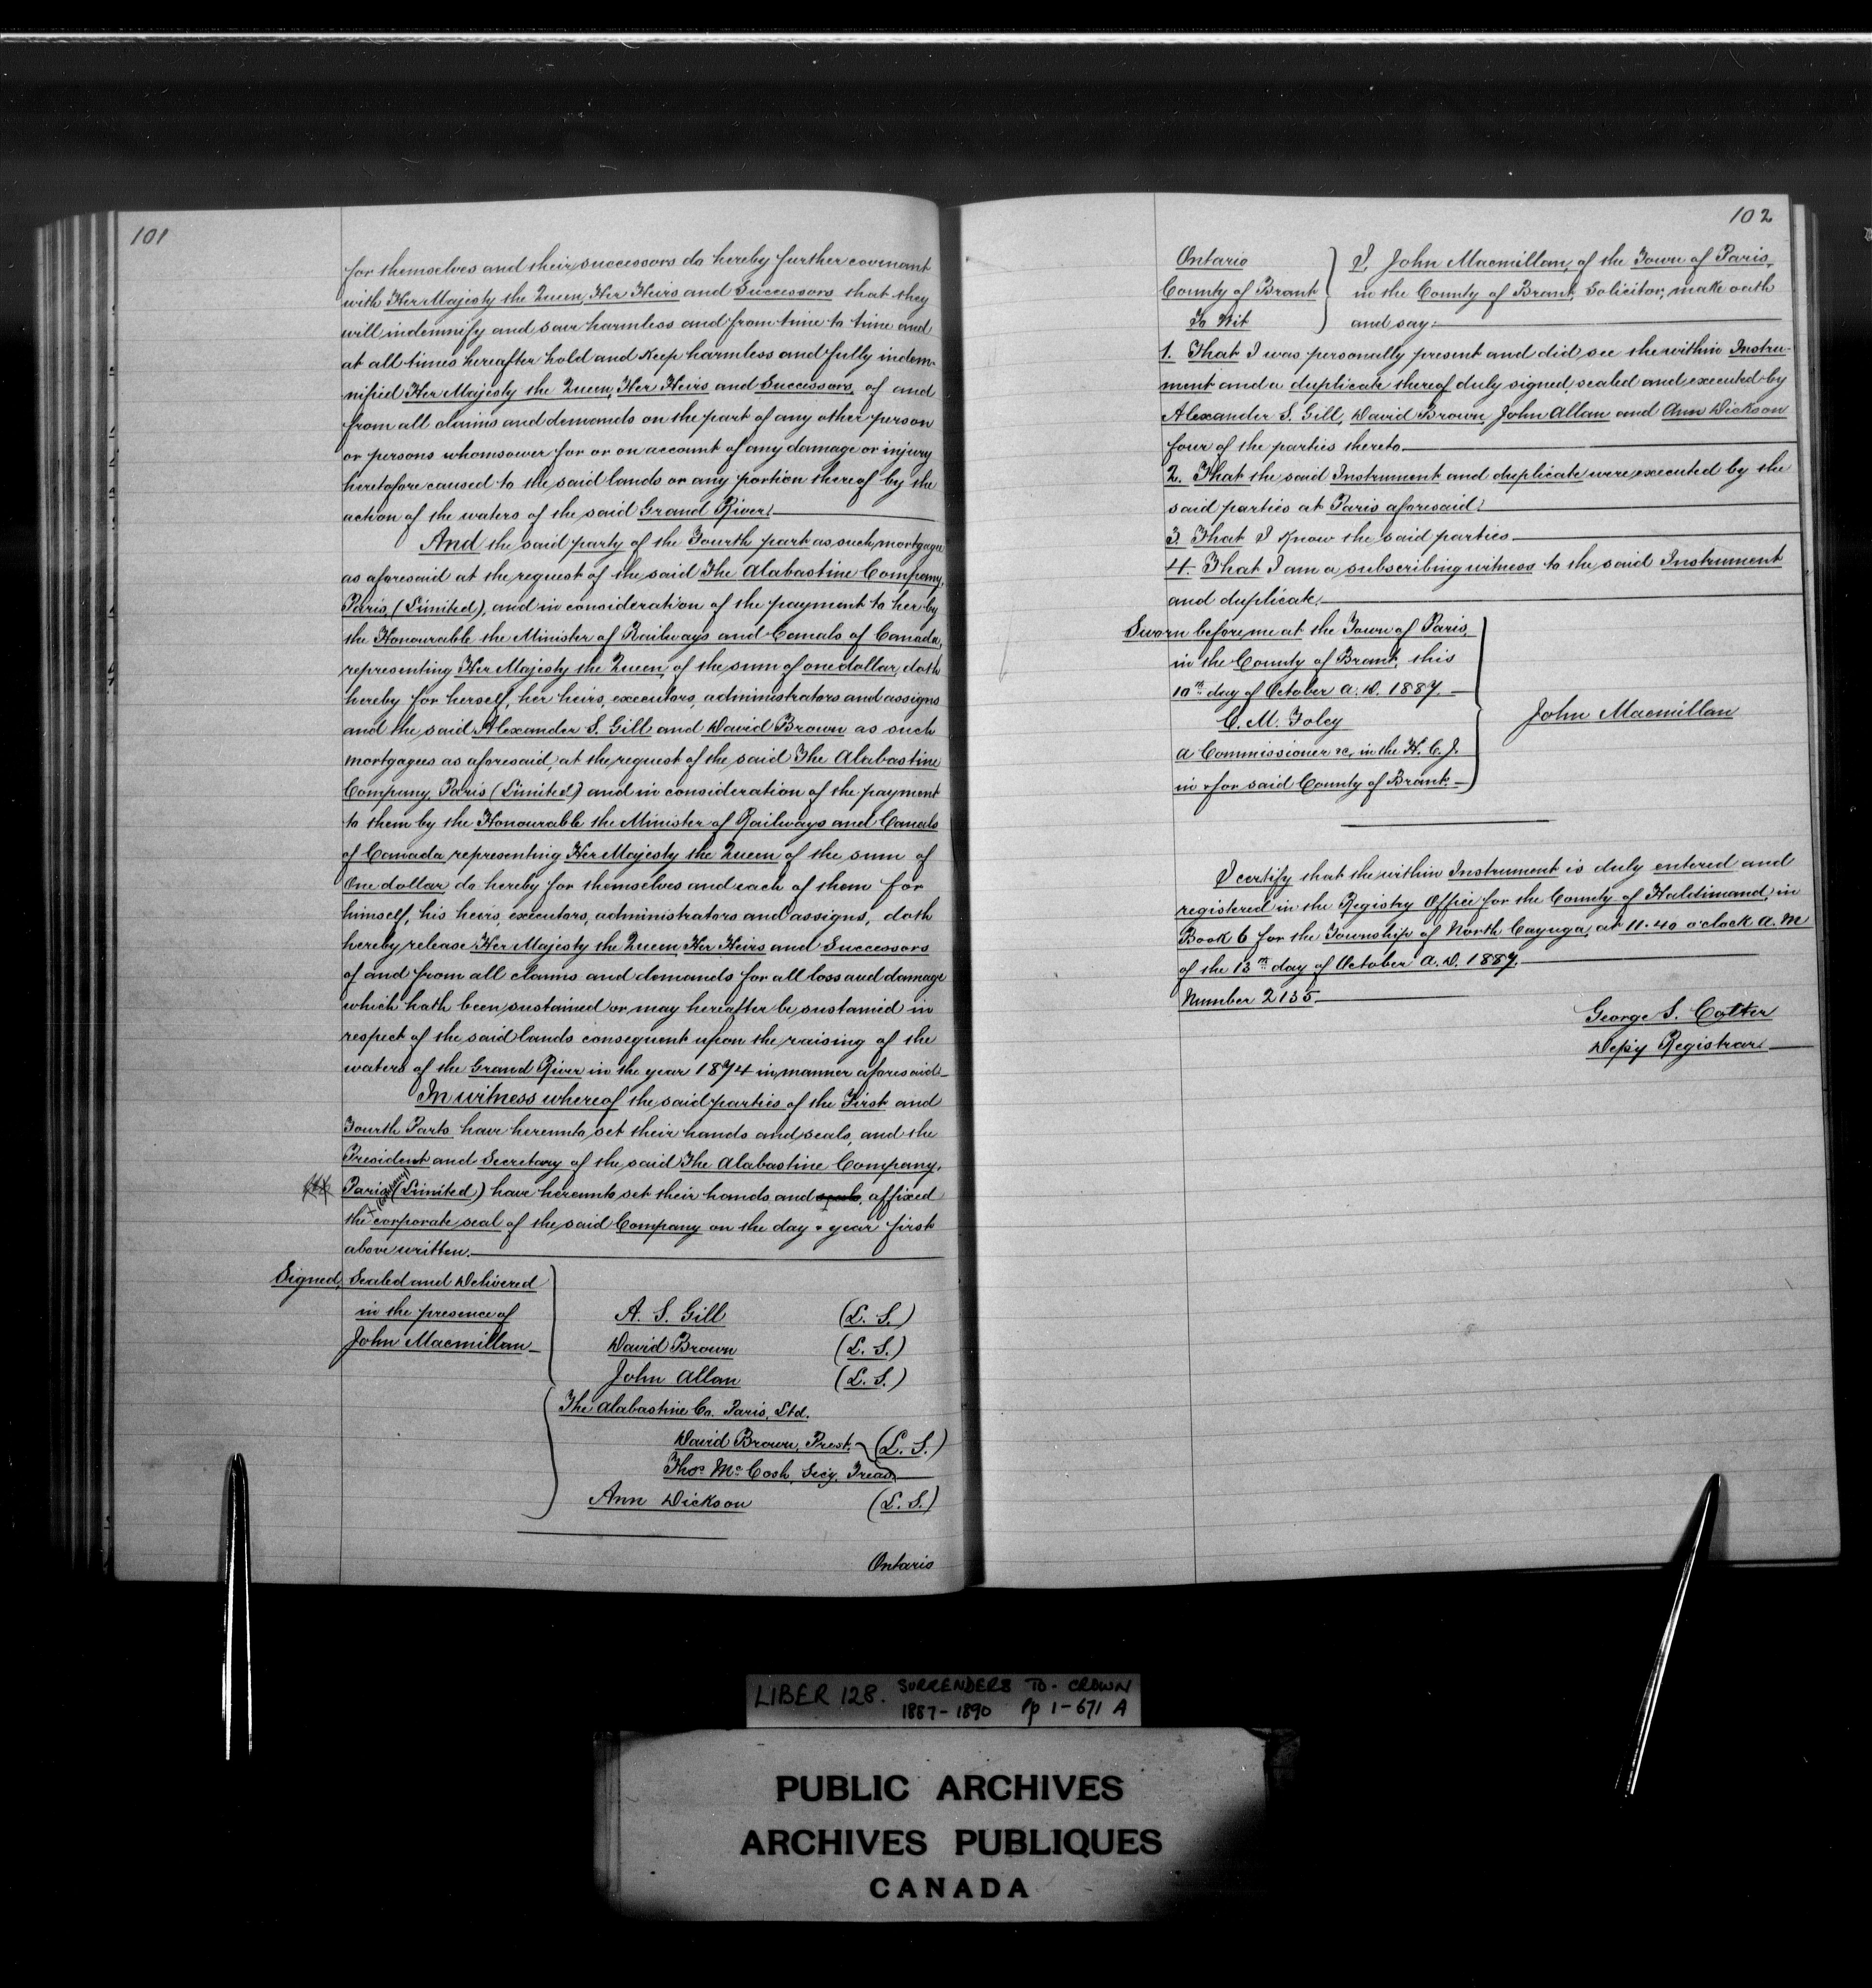 101
for themselves and their successors do hereby further covenant
with Her Majesty the Queen, Her Heirs and Successors, that they
will indemnify and save harmless and from time to time and
at all times hereafter hold and keep harmless and fully indem-
nified Her Majesty the Queen, Her Heirs and Successors, of and
from all claims and demands on the part of any other person
or persons whomsoever for or on account of any damage or injury
heretofore caused to the said lands or any portion thereof by the
action of the waters of the said Grand River.
And the said party of the Fourth part as such mortgagee
as aforesaid at the request of the said The Alabastine Company,
Paris (Limited), and in consideration of the payment to her by
the Honourable the Minister of Railways and Canals of Canada,
representing Her Majesty the Queen, of the sum of one dollar, doth
hereby for herself, her heirs, executors, administrators and assigns
and the said Alexander S. Gill and David Brown as such
mortgagees as aforesaid, at the request of the said The Alabastine
Company, Paris (Limited) and in consideration of the payment
to them by the Honourable the Minister of Railways and Canals
of Canada representing Her Majesty the Queen of the sum of
One dollar do hereby for themselves and each of them for
himself, his heirs, executors, administrators and assigns, doth
hereby release Her Majesty the Queen, Her Heirs and Successors
of and from all claims and demands for all loss and damage
which hath been sustained or may hereafter be sustained in
respect of the said lands consequent upon the raising of the
waters of the Grand River in the year 1874 in manner aforesaid
In witness whereof the said parties of the First and
Fourth Parts have hereunto set their hands and seals, and the
President and Secretary of the said The Alabastine Company,
Paris (Limited) have hereunto set their hands and seals, affixed
the corporate seal of the said Company on the day & year first
above written.
Signed, Sealed and Delivered
in the presence of
John Macmillan
A. S. Gill (L. S.)
David Brown (L. S.)
John Allan (L. S.)
The Alabastine Co. Paris, Ltd.
David Brown, Prest. (L. S.)
Thos. McCosh, Secy. Treas.
Ann Dickson (L. S.)
Ontario
102
Ontario
County of Brant
To Wit
I, John Macmillan, of the Town of Paris,
in the County of Brant, Solicitor, make oath
and say:
1. That I was personally present and did see the within Instru-
ment and a duplicate thereof duly signed, sealed and executed by
Alexander S. Gill, David Brown, John Allan and Ann Dickson
four of the parties thereto
2. That the said Instrument and duplicate were executed by the
said parties at Paris aforesaid.
3. That I know the said parties
4. That I am a subscribing witness to the said Instrument
and duplicate.
Sworn before me at the Town of Paris,
in the County of Brant, this
10th day of October A.D. 1887.
C. M. Foley
A Commissioner &c, in the H. C. J.
in & for said County of Brant.
John Macmillan
I certify that the within Instrument is duly entered and
registered in the Registry Office for the County of Haldimand, in
Book 6 for the Township of North Cayuga, at 11.40 o'clock A.M
of the 13th day of October A.D. 1887.
Number 2135
George S. Cotter
Depy Registrar
LIBER 128. SURRENDERS TO CROWN
1887-1890 pp 1-671 A
PUBLIC ARCHIVES
ARCHIVES PUBLIQUES
CANADA